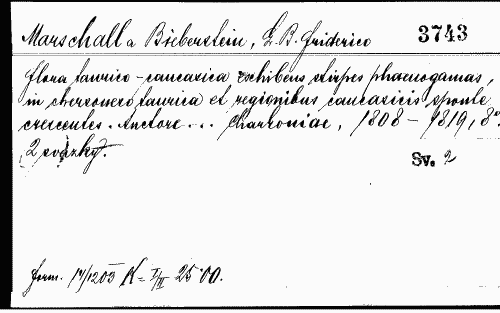 Marschall a Bieberstein, L. B. Friderico 3743
Flora taurico-caucasica exhibens stirpes phaenogamas,
in chersoneso taurica et regionibus caucasicis sponte
crescentes. Auctore... Charkoviae, 1808-1819, 8°.
2 svazky.
Sv. 2
form. 14/1203 K = I/II 25·00.